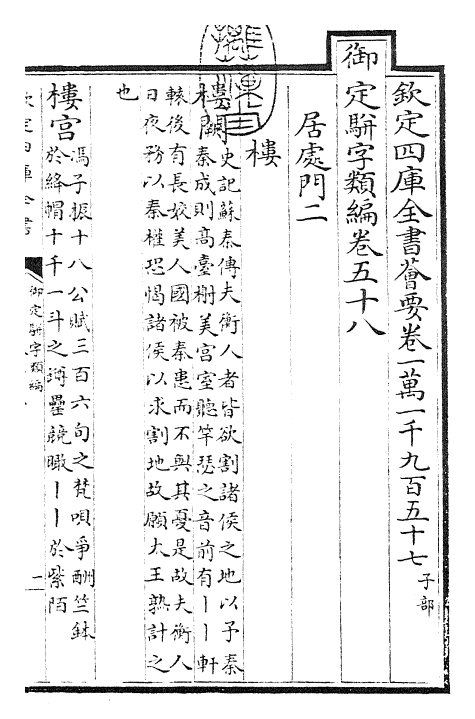 欽定四庫全書薈要卷一萬一千九百五十七 子部
御定駢字類編卷五十八
居處門二
樓
樓闕 史記蘇秦傳夫衡人者皆欲割諸侯之地以予秦
秦成則高臺榭美宫室聽竽瑟之音前有丨丨軒
轅後有長姣美人國被秦患而不與其憂是故夫衡人
日夜務以秦權恐愒諸侯以求割地故願大王熟計之
也
樓宫 馮子振十八公賦三百六句之梵唄爭酬竺鉢
於絡帽十千一斗之罇罍競瞰丨丨於紫陌
欽定四庫全書
御定駢字類編
一